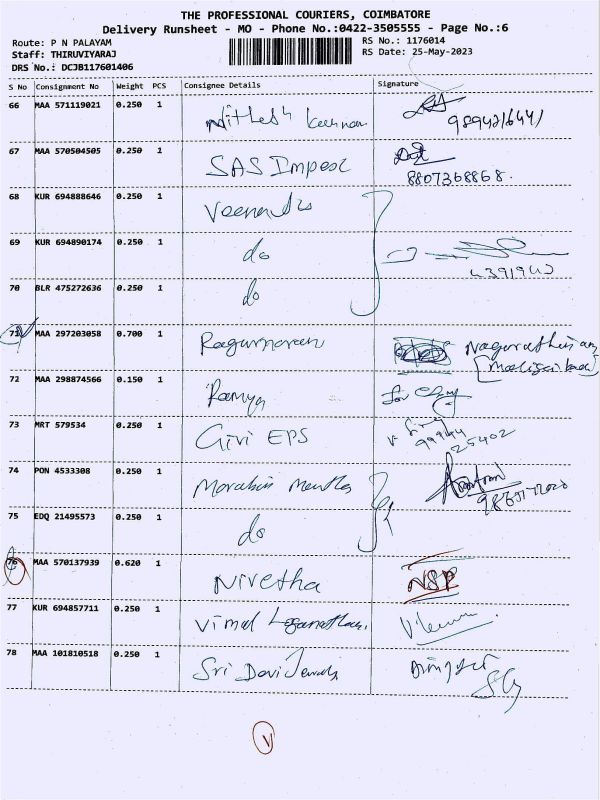 THE PROFESSIONAL COURIERS, COIMBATORE
Delivery Runsheet - MO - Phone No.:0422-3505555 - Page No.:6
Route: P N PALAYAM
RS No.: 1176014
Staff: THIRUVIYARAJ
RS Date: 25-May-2023
DRS No.: DCJB117601406
S No Consignment No Weight PCS Consignee Details Signature
66 MAA 571119021 0.250 1
67 MAA 570504505 0.250 1 SAS Impex
8807368868.
68 KUR 694888646 0.250 1
69 KUR 694890174 0.250 1 do
70 BLR 475272636 0.250 1 do
71 MAA 297203058 0.700 1
72 MAA 298874566 0.150 1 Ramya
73 MRT 579534 0.250 1 Givi EPS
99944
25402
74 PON 4533308 0.250 1
75 EDQ 21495573 0.250 1 do
76 MAA 570137939 0.620 1 Nivetha NSP
77 KUR 694857711 0.250 1 Vimal Loganathan.
78 MAA 101810518 0.250 1 Sri Devi Jewels